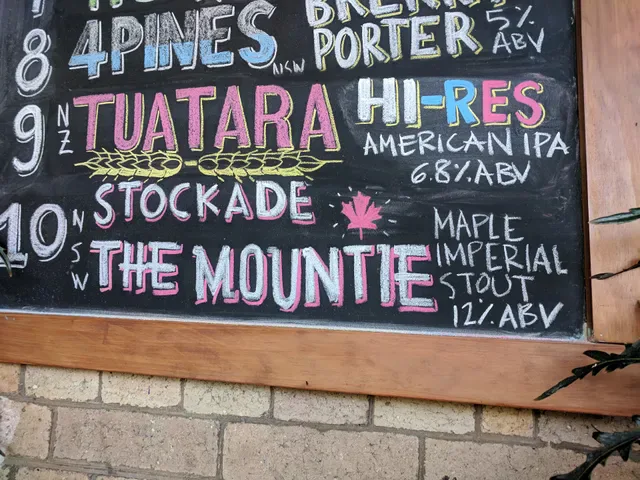 8 4PINES NSW PORTER 5% ABV
9 NZ TUATARA HI-RES
AMERICAN IPA
6.8% ABV
10 NSW STOCKADE
THE MOUNTIE
MAPLE
IMPERIAL
STOUT
12% ABV